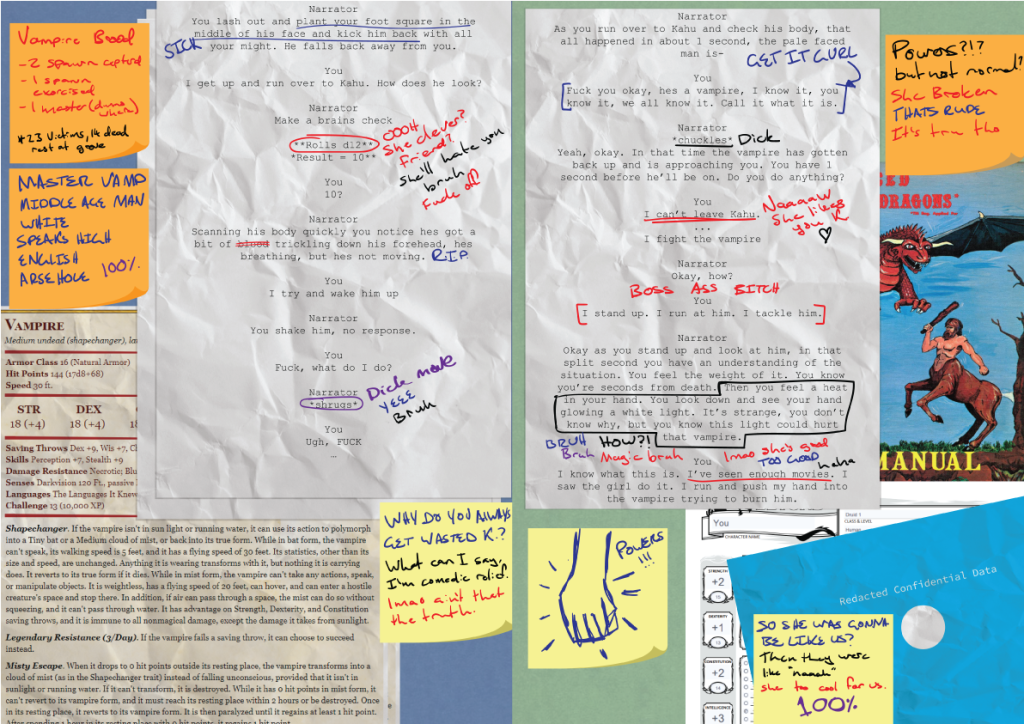 Vampire Brood
- 2 spawn captured
- 1 spawn
exorcised
- 1 master (dunno
where)
* 23 Victims, 14 dead
rest at grave
MASTER VAMP
MIDDLE AGE MAN
WHITE
SPEAKS HIGH
ENGLISH
ARSEHOLE 100%
VAMPIRE
Medium undead (shapechanger), la
Armor Class 16 (Natural Armor)
Hit Points 144 (17d8+68)
Speed 30 ft.
STR DEX
18 (+4) 18 (+4) 18
Saving Throws Dex +9, Wis +7, C
Skills Perception +7, Stealth +9
Damage Resistance Necrotic; Blu
Senses Darkvision 120 Ft., passive
Languages The Languages It Knew
Challenge 13 (10,000 XP)
Shapechanger. If the vampire isn't in sun light or running water, it can use its action to polymorph
into a Tiny bat or a Medium cloud of mist, or back into its true form. While in bat form, the vampire
can't speak, its walking speed is 5 feet, and it has a flying speed of 30 feet. Its statistics, other than its
size and speed, are unchanged. Anything it is wearing transforms with it, but nothing it is carrying
does. It reverts to its true form if it dies. While in mist form, the vampire can't take any actions, speak,
or manipulate objects. It is weightless, has a flying speed of 20 feet, can hover, and can enter a hostile
creature's space and stop there. In addition, if air can pass through a space, the mist can do so without
squeezing, and it can't pass through water. It has advantage on Strength, Dexterity, and Constitution
saving throws, and it is immune to all nonmagical damage, except the damage it takes from sunlight.
Legendary Resistance (3/Day). If the vampire fails a saving throw, it can choose to succeed
instead.
Misty Escape. When it drops to 0 hit points outside its resting place, the vampire transforms into a
cloud of mist (as in the Shapechanger trait) instead of falling unconscious, provided that it isn't in
sunlight or running water. If it can't transform, it is destroyed. While it has 0 hit points in mist form, it
can't revert to its vampire form, and it must reach its resting place within 2 hours or be destroyed. Once
in its resting place, it reverts to its vampire form. It is then paralyzed until it regains at least 1 hit point.
After spending 1 hour in its resting place with 0 hit points, it regains 1 hit point.
Narrator
You lash out and plant your foot square in the
middle of his face and kick him back with all
your might. He falls back away from you.
SICK
You
I get up and run over to Kahu. How does he look?
Narrator
Make a brains check
**Rolls d12**
*Result = 10**
OOOH
She clever?
Friend?
She'll hate you
bruh
Fuck off
You
10?
Narrator
Scanning his body quickly you notice hes got a
bit of blood trickling down his forehead, hes
breathing, but hes not moving. RIP
You
I try and wake him up
Narrator
You shake him, no response.
You
Fuck, what do I do?
Narrator
*shrugs*
Dick move
YEEE
Bruh
You
Ugh, FUCK
…
WHY DO YOU ALWAYS
GET WASTED K.?
What can I say,
I'm comedic relief.
lmao ain't that
the truth.
Narrator
As you run over to Kahu and check his body, that
all happened in about 1 second, the pale faced
man is-
GET IT GURL
You
Fuck you okay, hes a vampire, I know it, you
know it, we all know it. Call it what it is.
Narrator
*chuckles* Dick
Yeah, okay. In that time the vampire has gotten
back up and is approaching you. You have 1
second before he'll be on. Do you do anything?
You
I can't leave Kahu.
Naaaaw
She likes
you K
...
I fight the vampire
Narrator
Okay, how?
BOSS ASS BITCH
You
I stand up. I run at him. I tackle him.
Narrator
Okay as you stand up and look at him, in that
split second you have an understanding of the
situation. You feel the weight of it. You know
you're seconds from death. Then you feel a heat
in your hand. You look down and see your hand
glowing a white light. It's strange, you don't
know why, but you know this light could hurt
that vampire.
BRUH HOW?!
Bruh Magic bruh
lmao she's good
TOO GOOD
haha
You
I know what this is. I've seen enough movies. I
saw the girl do it. I run and push my hand into
the vampire trying to burn him.
POWERS
!!!
Powers?!?
but not normal?
She Broken
THATS RUDE
It's true tho
DRAGONS
MANUAL
You
CHARACTER NAME
Druid 1
CLASS & LEVEL
Human
STRENGTH
+2
DEXTERITY
+1
CONSTITUTION
+2
INTELLIGENCE
+3
Redacted Confidential Data
SO SHE WAS GONNA
BE LIKE US?
Then they were
like "naaah"
she too cool for us.
100%